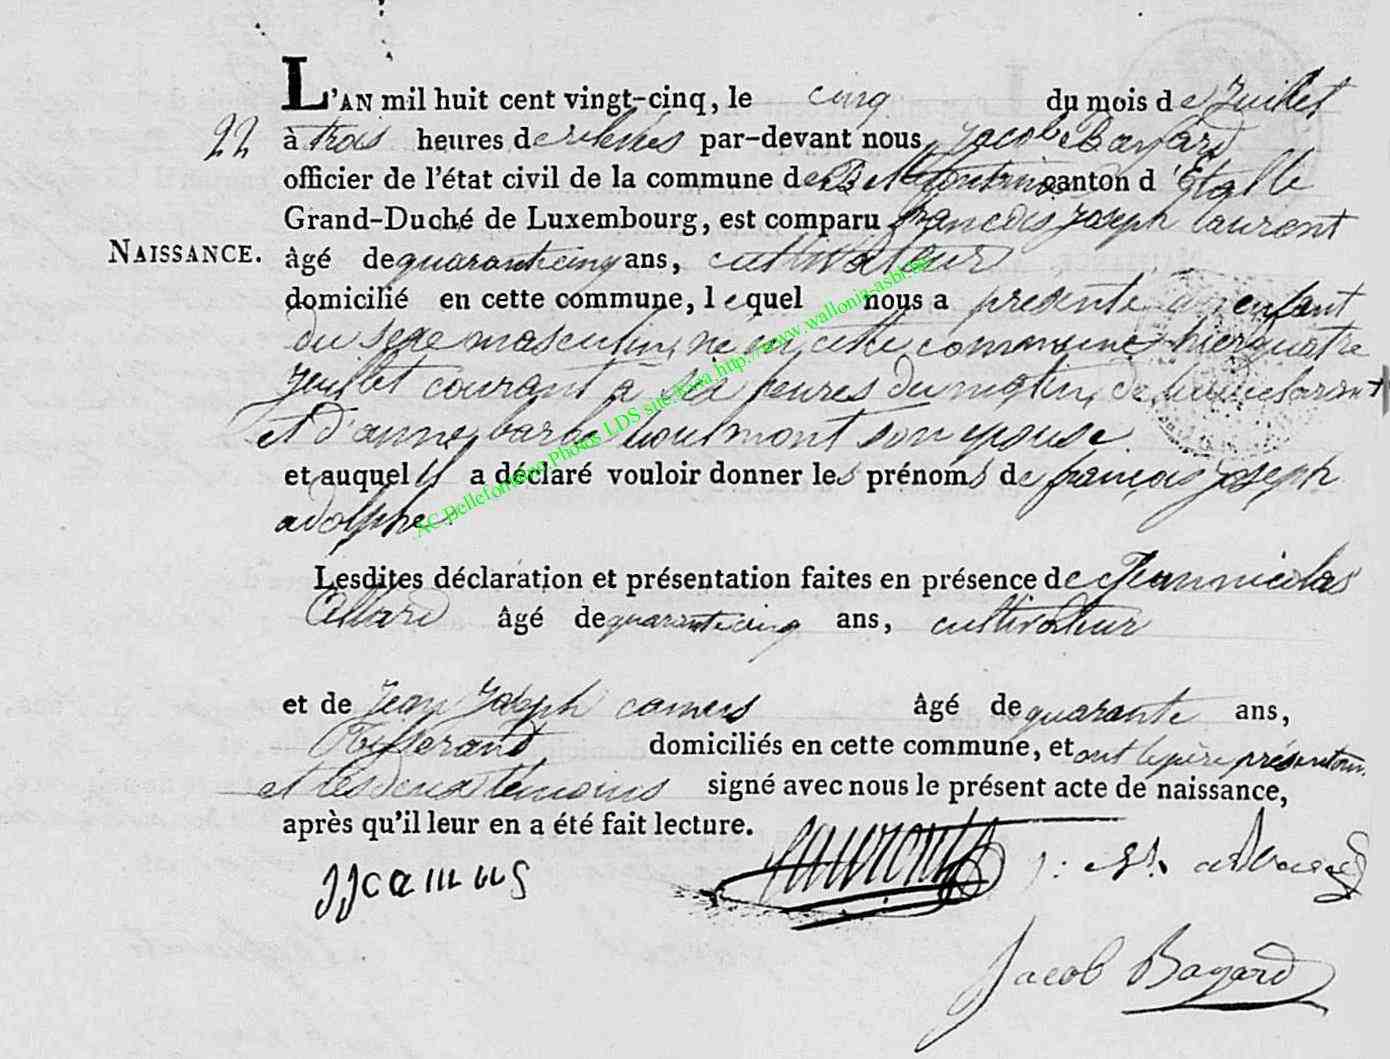 L'AN mil huit cent vingt-cinq, le cinq du mois de Juillet
22 à trois heures de relevées par-devant nous Jacob Bayard
officier de l'état civil de la commune de Bellefontaine canton d'Etalle
Grand-Duché de Luxembourg, est comparu francois Joseph laurent
NAISSANCE. âgé de quarante cinq ans, cultivateur
domicilié en cette commune, lequel nous a presenté un enfant
du sexe masculin, né en cette commune hier quatre
Juillet courant a six heures du matin, de lui declarant
et d'anne barbe son epouse
et auquel il a déclaré vouloir donner les prénoms de françois Joseph
adolphe.
Lesdites déclaration et présentation faites en présence de Jean nicolas
allard âgé de quarante cinq ans, cultivateur
et de Jean Joseph camus âgé de quarante ans,
Tisserand domiciliés en cette commune, et ont le père présentant
et les deux temoins signé avec nous le présent acte de naissance,
après qu'il leur en a été fait lecture.
JJcamus laurent
Jacob Bayard
AC Bellefontaine Photos LDS site http://www.wallonia-asbl.be